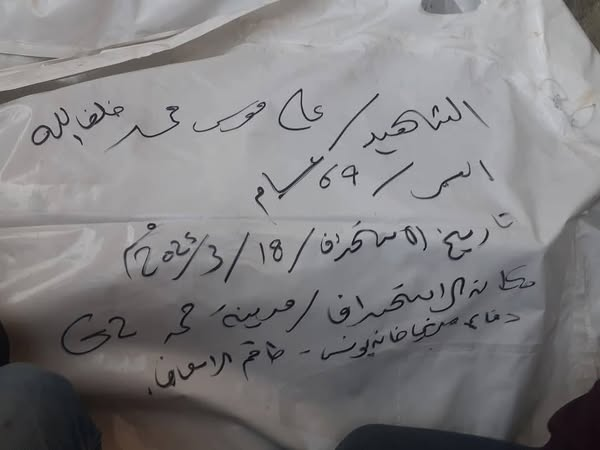 الشهيد / علي موسى محمد خلف الله
العمر / 69 عام
تاريخ الاستهداف / 18 / 3 / 2024م
مكان الاستهداف / مدينة حمد G2
دفاع مدني خانيونس - طاقم الاسعاف